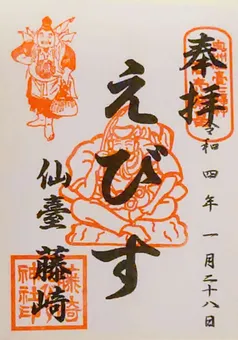 奉拝
令和四年一月二十八日
えびす
仙臺 藤崎